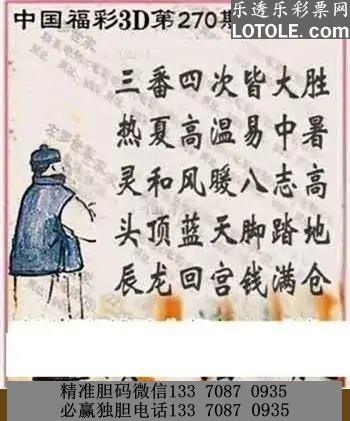 中国福彩3D第270期
乐透乐彩票网
LOTOLE.COM
三番四次皆大胜
热夏高温易中暑
灵和风暖八志高
头顶蓝天脚踏地
辰龙回宫钱满仓
精准胆码微信133 7087 0935
必赢独胆电话133 7087 0935